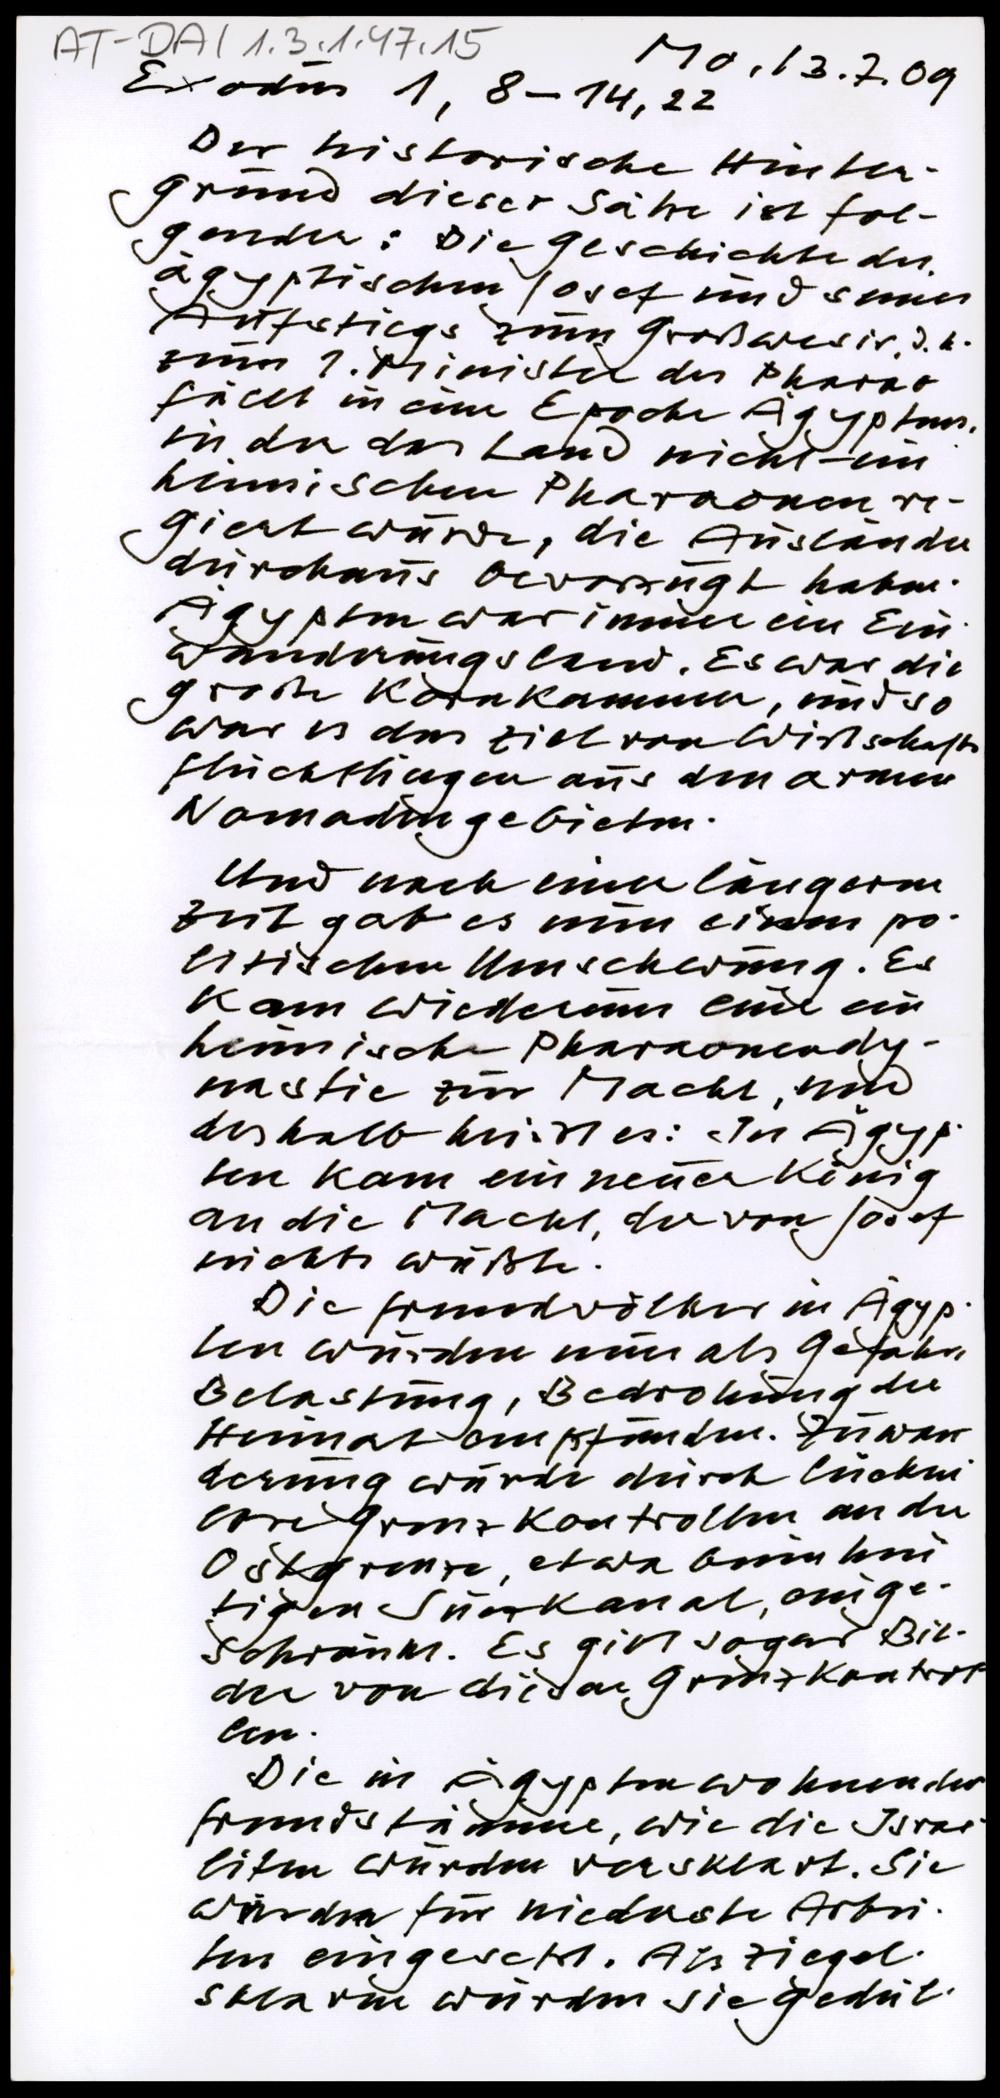 AT-DA/ 1.3.1.47.15
Mo, 13.7.09
Exodus 1, 8-14, 22
Der historische Hinter-
grund dieser Sätze ist fol-
gender: Die Geschichte des
ägyptischen Josef und seines
Aufstiegs zum Großwesir, d. h.
zum 1. Minister des Pharao
fällt in eine Epoche Ägyptens,
in der das Land nicht-ein
heimischen Pharaonen re-
giert wurde, die Ausländer
durchaus bevorzugt haben.
Ägypten war immer ein Ein
wanderungsland. Es war die
große Kornkammer, und so
war es das Ziel von Wirtschafts
flüchtlingen aus den armen
Nomadengebieten.
Und nach einer längeren
Zeit gab es nun einen po-
litischen Umschwung. Es
kam wiederum eine ein
heimische Pharaonendy-
nastie zur Macht, und
deshalb heißt es: In Ägyp-
ten kam ein neuer König
an die Macht, der von Josef
nichts wußte.
Die Fremdvölker in Ägyp-
ten wurden nun als Gefahr,
Belastung, Bedrohung der
Heimat empfunden. Zuwan
derung wurde durch lücken
lose Grenzkontrollen an der
Ostgrenze, etwa beim heu
tigen Suezkanal, einge-
schränkt. Es gibt sogar Bil-
der von diesen Grenzkontrol
len.
Die in Ägypten wohnenden
Fremdstämme, wie die Israe
liten wurden versklavt. Sie
wurden für niederste Arbei-
ten eingesetzt. Als Ziegel-
sklaven wurden sie gedul-